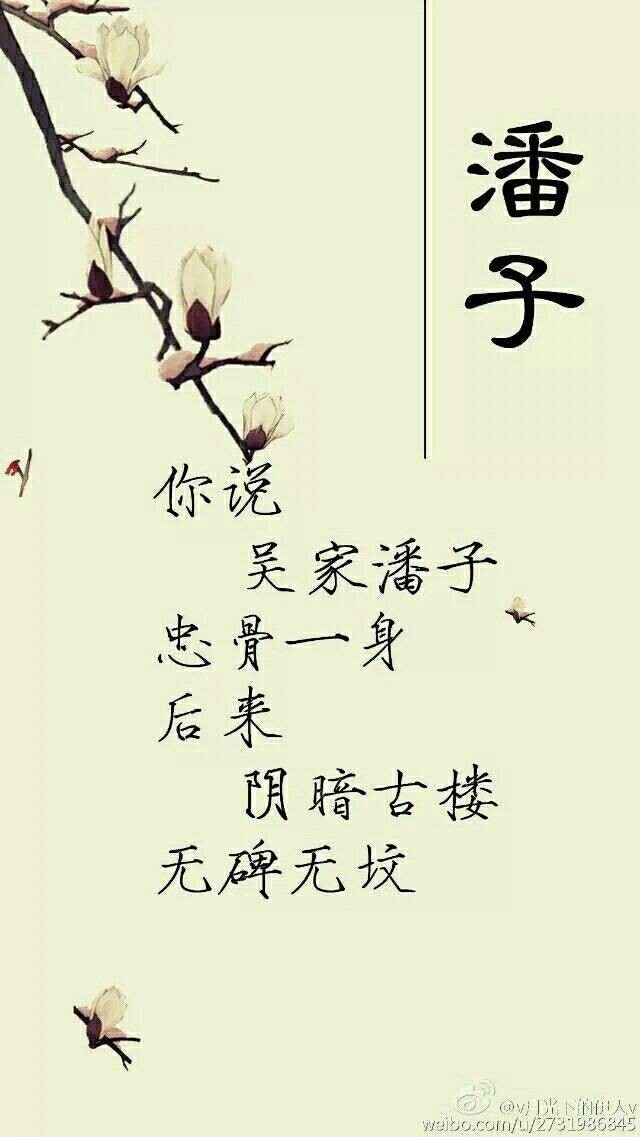 潘子
你说
吴家潘子
忠骨一身
后来
阴暗古楼
无碑无坟
@v月光下的伊人v
weibo.com/u/2731986845